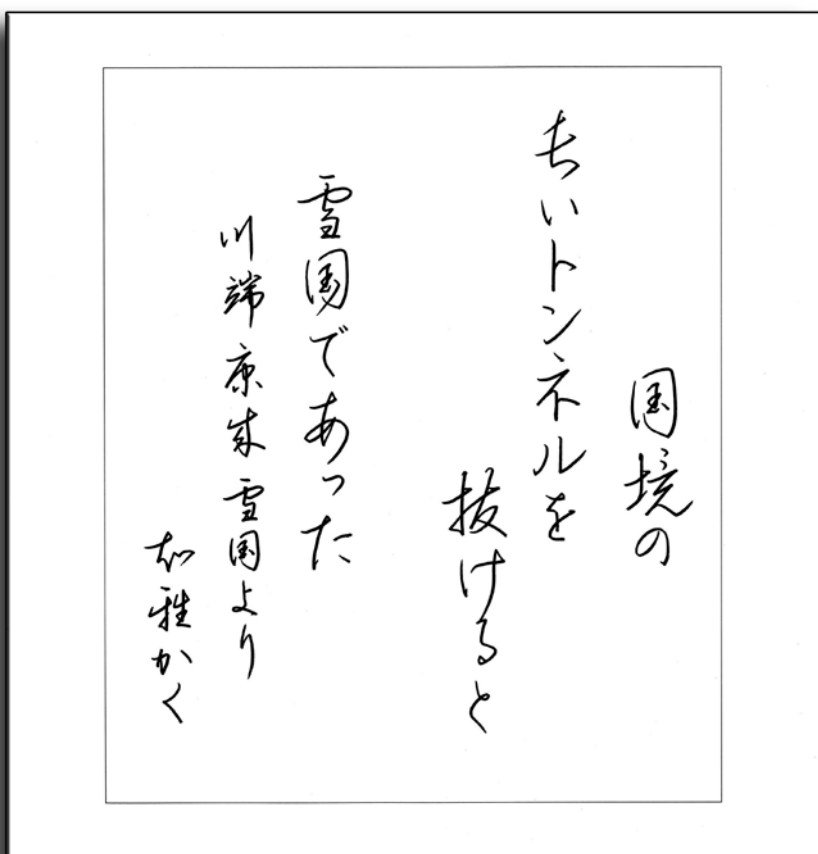 国境の
長いトンネルを
抜けると
雪国であった
川端康成 雪国より
知雅かく